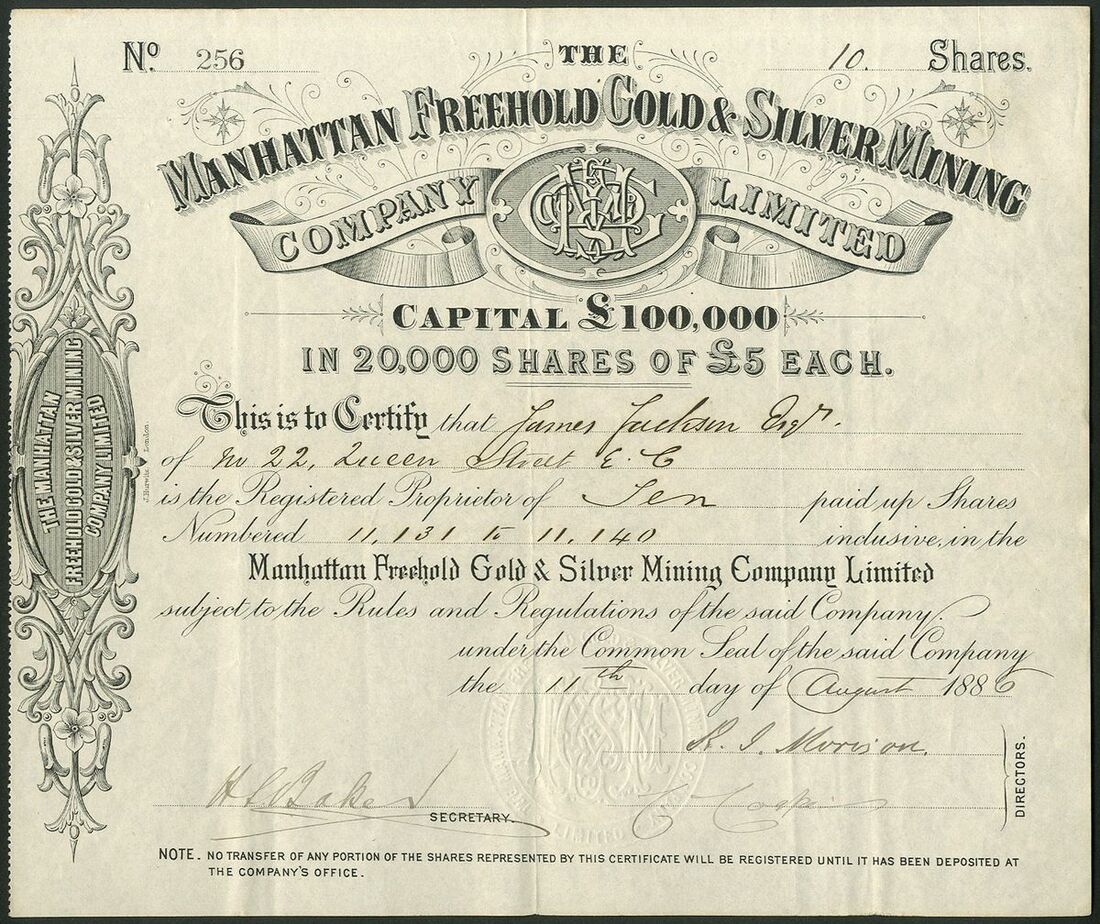 Nº 256
10. Shares.
THE
MANHATTAN FREEHOLD GOLD & SILVER MINING
COMPANY LIMITED
CAPITAL £100,000
IN 20,000 SHARES OF £5 EACH.
This is to Certify that James Jackson Esqr.
of No 22, Queen Street E.C
is the Registered Proprietor of Ten paid up Shares
Numbered 11,131 to 11,140 inclusive, in the
Manhattan Freehold Gold & Silver Mining Company Limited
subject to the Rules and Regulations of the said Company.
under the Common Seal of the said Company
the 11th day of August 1886
Morison.
H Baker
SECRETARY.
DIRECTORS.
NOTE. NO TRANSFER OF ANY PORTION OF THE SHARES REPRESENTED BY THIS CERTIFICATE WILL BE REGISTERED UNTIL IT HAS BEEN DEPOSITED AT
THE COMPANY'S OFFICE.
THE MANHATTAN
FREEHOLD GOLD & SILVER MINING
COMPANY LIMITED
London.